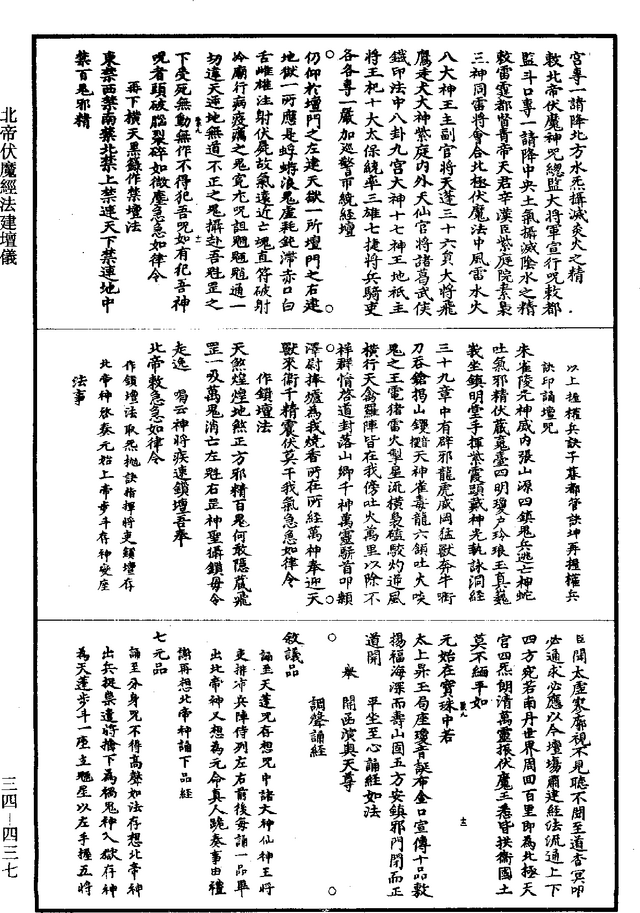 宮專一請降北方水炁攝滅炎火之精
敕北帝伏魔神咒總監大將軍宣行咒敕都
監斗口專一請降中央土氣攝滅陰水之精
敕雷霆都督青帝天君辛漢臣紫庭院素梟
三神同雷將會合北極伏魔法中風雷水火
八大神王主副官將天蓬三十六員大將飛
鷹走犬大神紫庭內外天仙官將諸葛武侯
鐵印法中八卦九宮大神十七神王地祇主
將王杞十大太保統率三雄七捷將兵騎吏
各各專一嚴加巡警帀繞經壇
仍仰於壇門之左建天獄一所壇門之右建
地獄一所應是蜉蝣浪鬼虛耗鈍滯赤口白
舌雌雄注射伏屍故氣遠近亡魂直符破射
冷廟行病疫癘之鬼冤尢咒詛魍魎魑通一
切違天逆地無道不正之鬼攝赴吾魁罡之
下受死無動無作不得犯吾咒如有犯吾神
咒者頭破腦裂碎如微塵急急如律令
再下橫天黑籙作禁壇法
東禁西禁南禁北禁上禁連天下禁連地中
禁百鬼邪精
以上握權兵訣子暮都管訣坤再握權兵
訣印誦壇咒
朱雀陵光神威內張山源四鎮鬼兵逃亡神蛇
吐氣邪精伏藏寬臺四明瓊戶玲琅玉真巍
峩坐鎮明堂手揮紫霞頭戴神光執詠洞經
三十九章中有辟邪龍虎威岡猛獸奔牛銜
刀吞鎗揭山钁𩆜天神雀毒龍六領吐火啖
鬼之王電豬雷火掣星流橫梟磕駮灼逆風
橫行天禽羅陣皆在我傍吐火萬里以除不
祥群情啓道封落山鄉千神萬靈驕首叩顙
澤尉捧爐為我燒香所在所經萬神奉迎天
獸來衞千精震伏莫干我氣急急如律令
作鎖壇法
天煞煌煌地煞正方邪精百鬼何敢隱藏飛
罡一吸萬鬼消亡左魁右罡神聖攝鎖毋令
走逸 喝云神將疾速鎖壇吾奉
北帝敕急急如律令
作鎖壇法取炁抛訣指揮將吏鎖壇存
北帝神啓奏元始上帝步斗存神變座
法事
臣聞太虛寥廓視不見聽不聞至道杳冥叩
必通求必應以今壇場肅建經法流通上下
四方宛若南丹世界周回百里即為北極天
宮四炁朗清萬靈振伏魔王悉皆拱衞國土
莫不緬平如
元始在寶珠中若
太上昇玉局座瓊音誕布金口宣傳十品敷
揚福海深而壽山固五方安鎮邪門閉而正
道開 平坐至心誦經如法
舉 開函演奧天尊
調聲誦經
敘議品
誦至天蓬咒存想咒中諸大神仙神王將
吏排布兵陣侍列左右前後每誦一品畢
出北帝神又想為元命真人跪奏事由禮
謝再想北帝神誦下品經
七元品
誦至分身咒不得高聲如法存想北帝神
出兵捉祟遣將擒下為禍鬼神入獄存神
為天蓬步斗一座主魁星以左手握五將
北帝伏魔經法建壇儀
三四—四三七